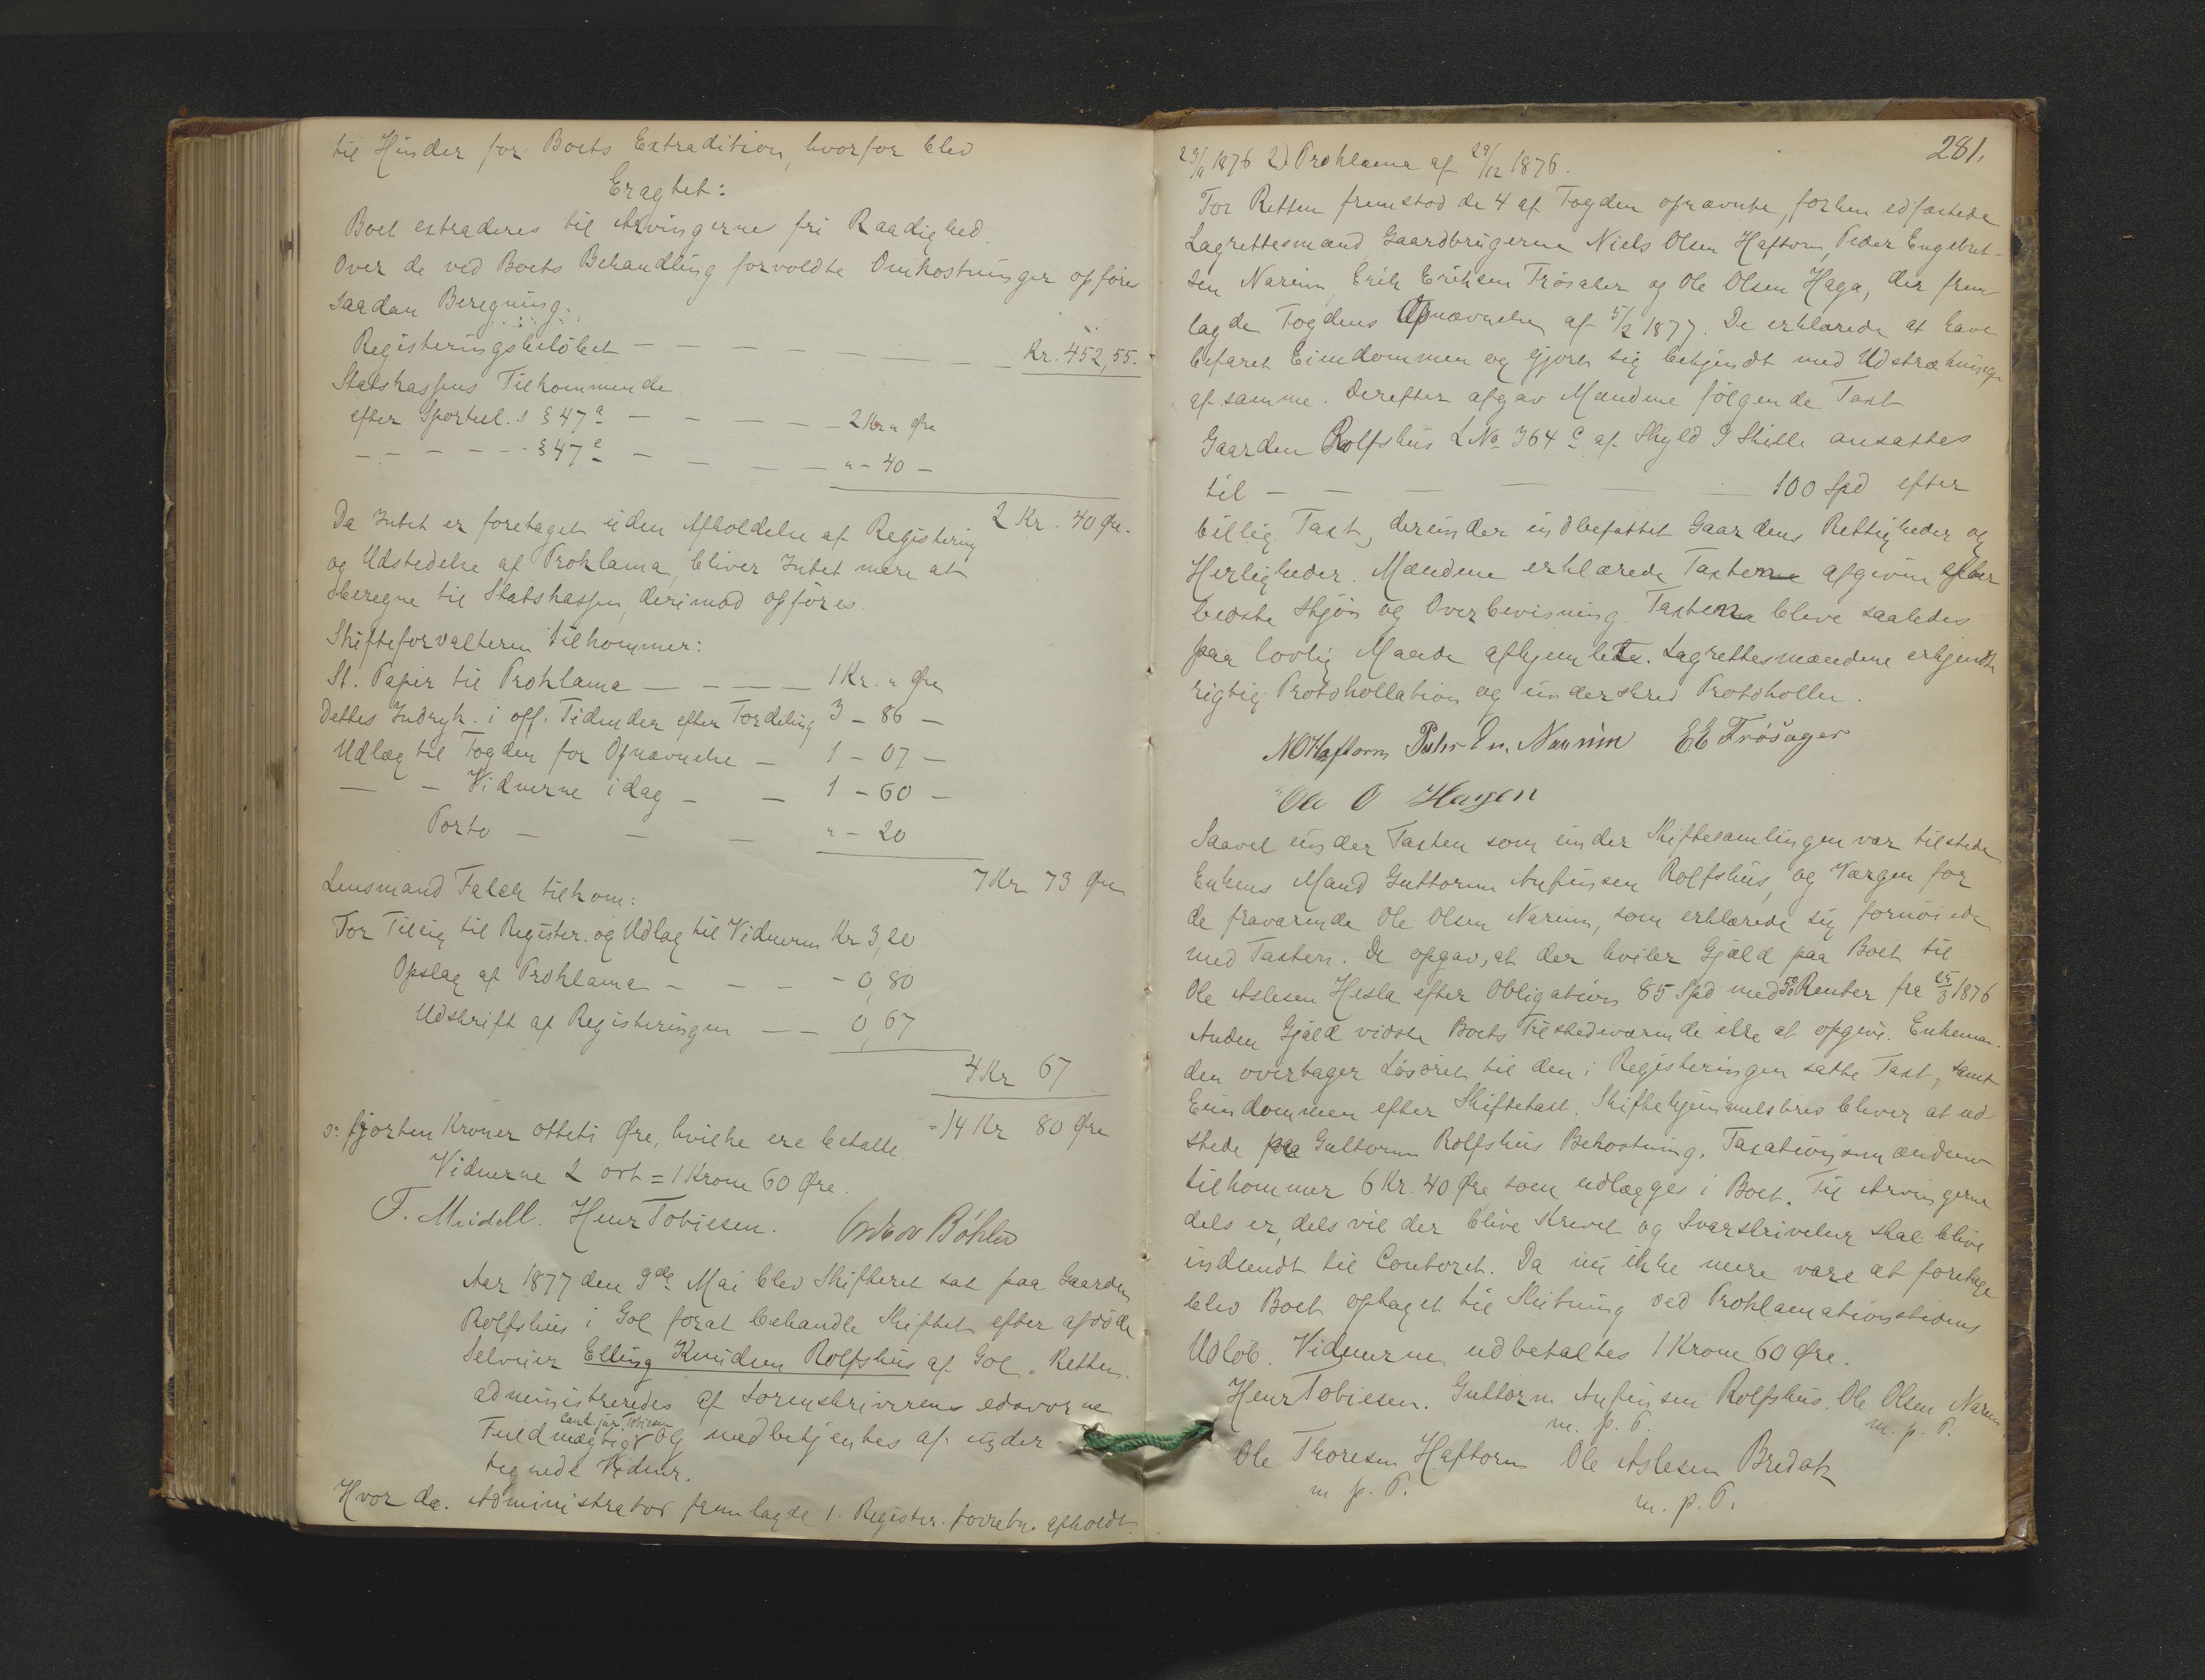 til Hinder for Boets Extradition, hvorfor blev
Eragtet:
Boet extraderes til Arvingernes fri Raadighed.
Over de ved Boets Behandling forvoldte Omkostninger opføres
saadan Beregning:
Registeringsbeløbet — — — — — — — — Kr. 452,55.
Statskassens Tilkommende
efter Sportul. l § 47 a — — — — — 2 Kr " Øre
— — — — — § 47 c — — — — " - 40 —
2 Kr. 40 Øre.
Da Intet er foretaget uden Afholdelse af Registering
og Udstedelse af Proklama, bliver Intet mere at
beregne til Statskassen, derimod opføres.
Skifteforvalteren tilkommer:
St. Papir til Proklama — — — — 1 Kr. " Øre
Dettes Indryk. i off. Tidender efter Fordeling 3 - 86 —
Udlæg til Fogden for Opnævnelse — 1 - 07 —
— — Vidnerne idag — — 1 - 60 —
Porto — — — " - 20
7 Kr 73 Øre
Lensmand Falck tilkom:
For Tilsig til Register. og Udlæg til Vidnerne Kr 3,20
Opslag af Proklama — — — - 0,80
Udskrift af Registeringen — — 0,67
4 Kr 67
= 14 Kr 80 Øre
o: fjorten Kroner otteti Øre, hvilke ere betalte.
Vidnerne 2 ort = 1 Krone 60 Øre.
F. Meidell. Henr Tobiesen. Bøhler
Aar 1877 den 9de Mai blev Skifteret sat paa Gaarden
Rolfshus i Gol forat behandle Skiftet efter afdøde
Selveier Elling Knudsen Rolfshus af Gol. Retten
administreredes af Sorenskriverens edsvorne
Cand. jur Tobiesen
Fuldmægtig og medbetjentes af under
tegnede Vidner.
Hvor da. Administrator fremlagde 1. Register. forretn. afholdt
281.
29/11 1876 2) Proklama af 29/12 1876.
For Retten fremstod de 4 af Fogden opnævnte, forhen edfæstede
Lagrettesmænd Gaardbrugerne Niels Olsen Haftorn, Peder Engebret-
sen Narum, Erik Eriksen Frøsaker og Ole Olsen Haga, der frem
lagde Fogdens Opnævnelse af 5/2 1877. De erklærede at have
befaret Eiendommen og gjort sig bekjendt med Udstrækningen
af samme. Derefter afgav Mændene følgende Taxt
Gaarden Rolfshus L No 364 c af Skyld 9 Skill ansattes
til — — — — — — 100 Spd efter
billig Taxt, derunder indbefattet Gaardens Rettigheder og
Herligheder. Mændene erklærede Taxterne afgivne efter
bedste Skjøn og Overbevisning. Taxterne bleve saaledes
paa lovlig Maade afhjemlete. Lagrettesmændene erkjendte
rigtig Protokollation og underskrev Protokollen.
NOHaftorn Peder En. Narum EE Frøsager
Ole O Hagen
Saavel under Taxten som under Skiftesamlingen var tilstede
Enkens Mand Guttorm Anfinsen Rolfshus, og Værgen for
de fraværende Ole Olsen Narum, som erklærede sig fornøiede
med Taxten. De opgav, at der hviler Gjæld paa Boet til
Ole Aslesen Hesla efter Obligation 85 Spd med Renter fra 1876
Anden Gjæld vidste Boets Tilstedeværende ikke at opgive. Enkeman-
den overtager Løsøret til den i Registeringen satte Taxt, samt
Eiendommen efter Skiftetaxt. Skiftehjemmelsbrev bliver at ud-
stede paa Guttorm Rolfshus Bekostning. Taxationsmændene
tilkommer 6 Kr. 40 Øre som udlægges i Boet. Til Arvingerne
dels er, dels vil der blive skrevet og Svarskrivelser skal blive
indsendt til Contoret. Da nu ikke mere være at foretage
blev Boet optaget til Slutning ved Proklamationstidens
Udløb. Vidnerne udbetaltes 1 Krone 60 Øre.
Henr Tobiesen. Guttorm Anfinsen Rolfshus. Ole Olsen Narum
m. p. P. m. p. P.
Ole Thoresen Haftorn Ole Aslesen Bredak
m. p. P. m. p. P.